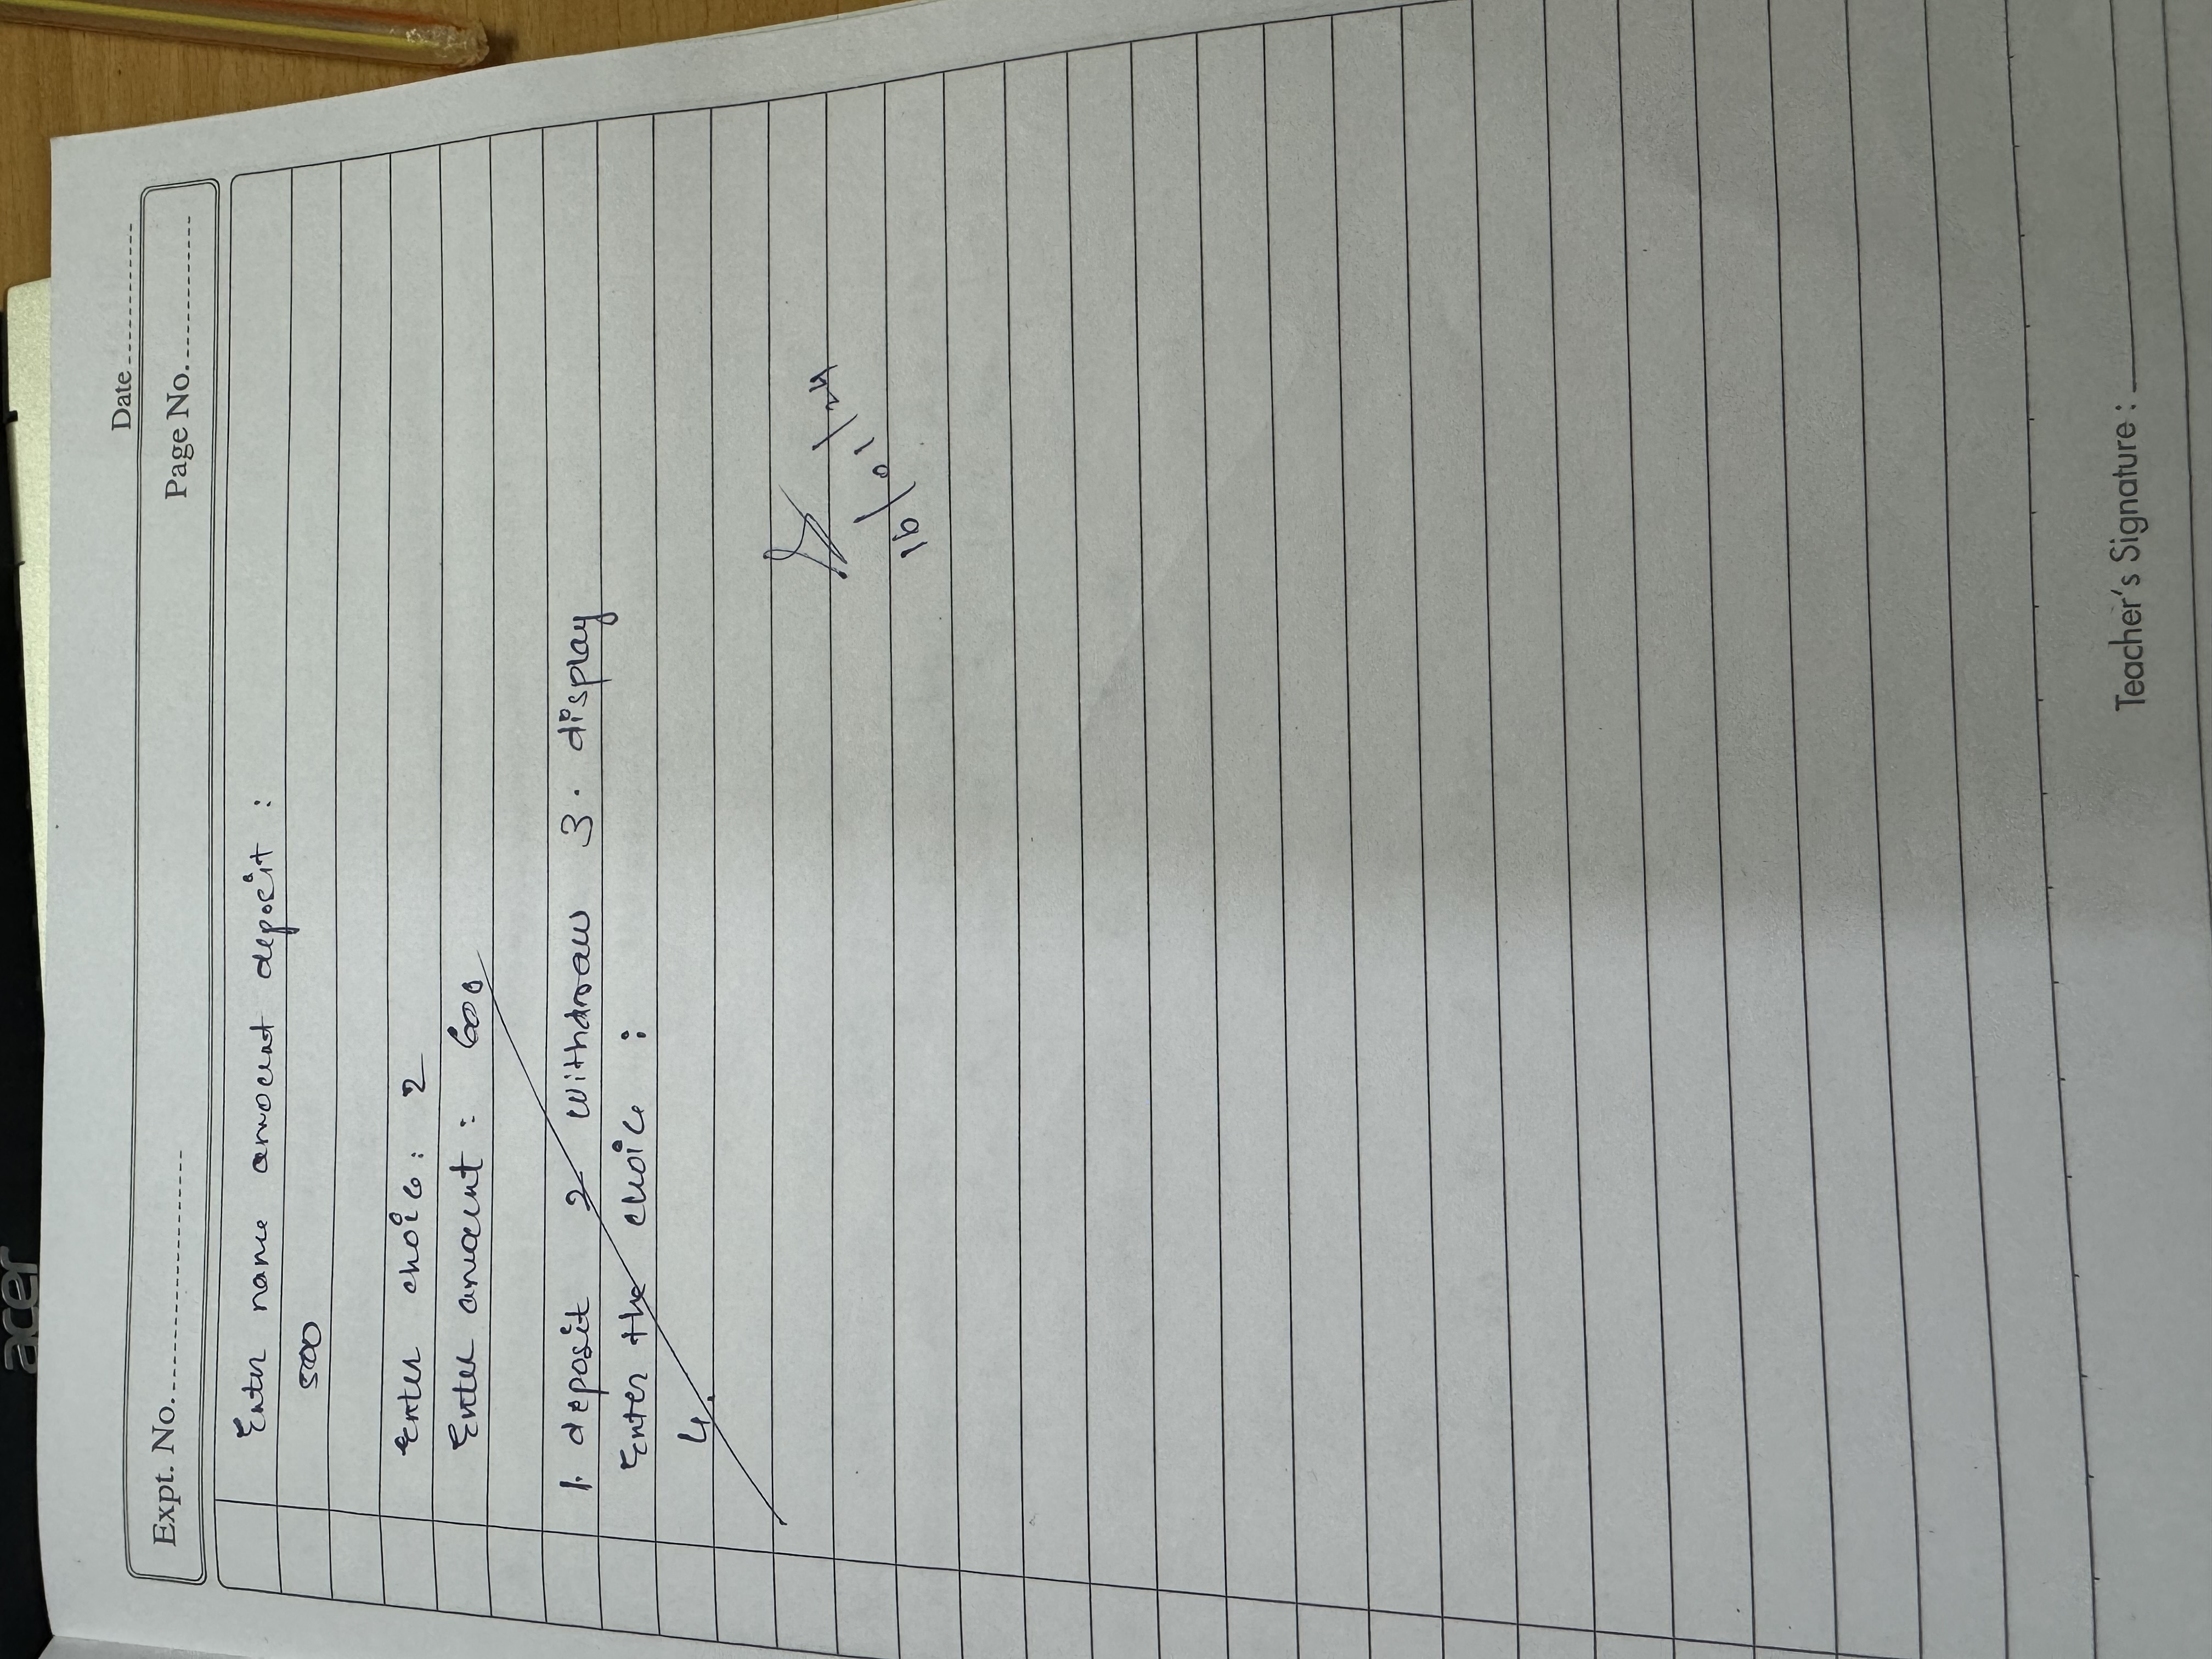 acer
Date
Expt. No.
Page No.
Enter name amount deposit :
500
Enter choice: 2
Enter amount : 600
1. deposit 2 withdraw 3. display
Enter the choice :
4.
16/01/24
Teacher's Signature :